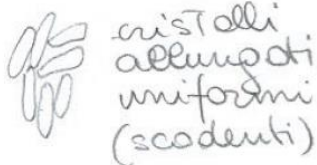 cristalli
allungati
uniformi
(scadenti)